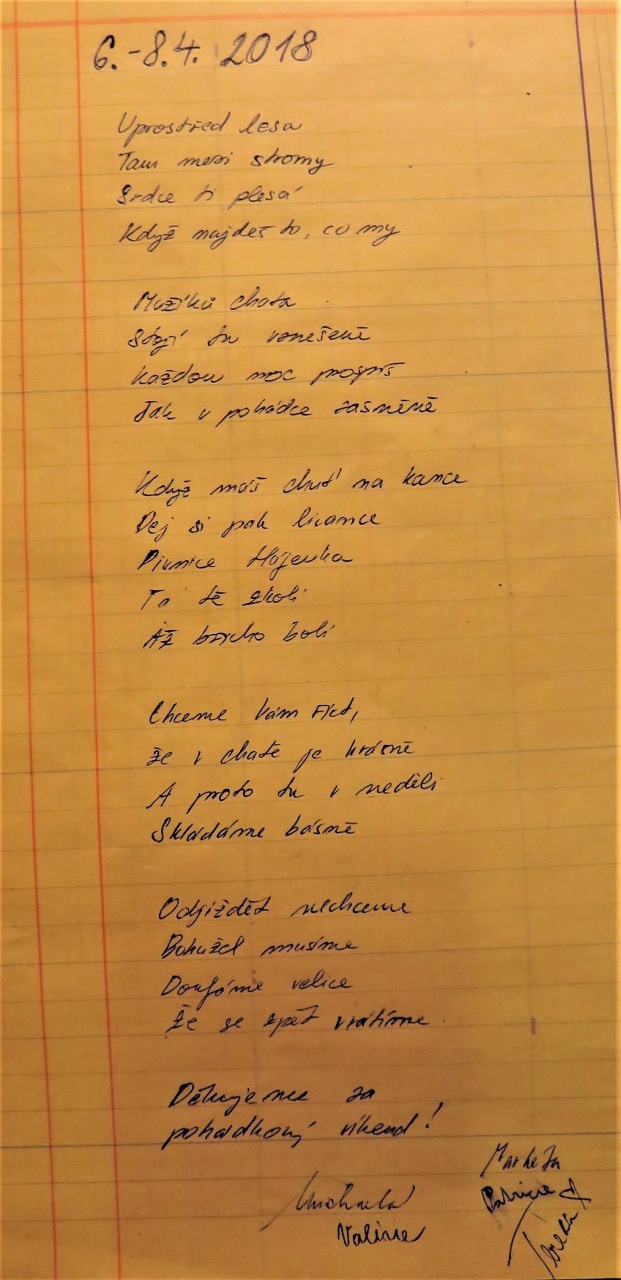 6.-8.4. 2018
Uprostřed lesa
Tam mezi stromy
Srdce ti plesá
Když najdeš to, co my
Mužíků chata
Stojí tu vznešeně
Každou noc prospíš
Jak v pohádce zasněně
Když máš chuť na kance
Dej si pak lívance
Pivnice Hájenka
Ta tě zkolí
Až břicho bolí
Chceme Vám říct,
že v chatě je krásně
A proto tu v neděli
Skládáme básně
Odjíždět nechceme
Bohužel musíme
Doufáme velice
Že se zpět vrátíme.
Děkujeme za
pohádkový víkend!
Markéta
Patricie
Michaela
Valérie
Tereza